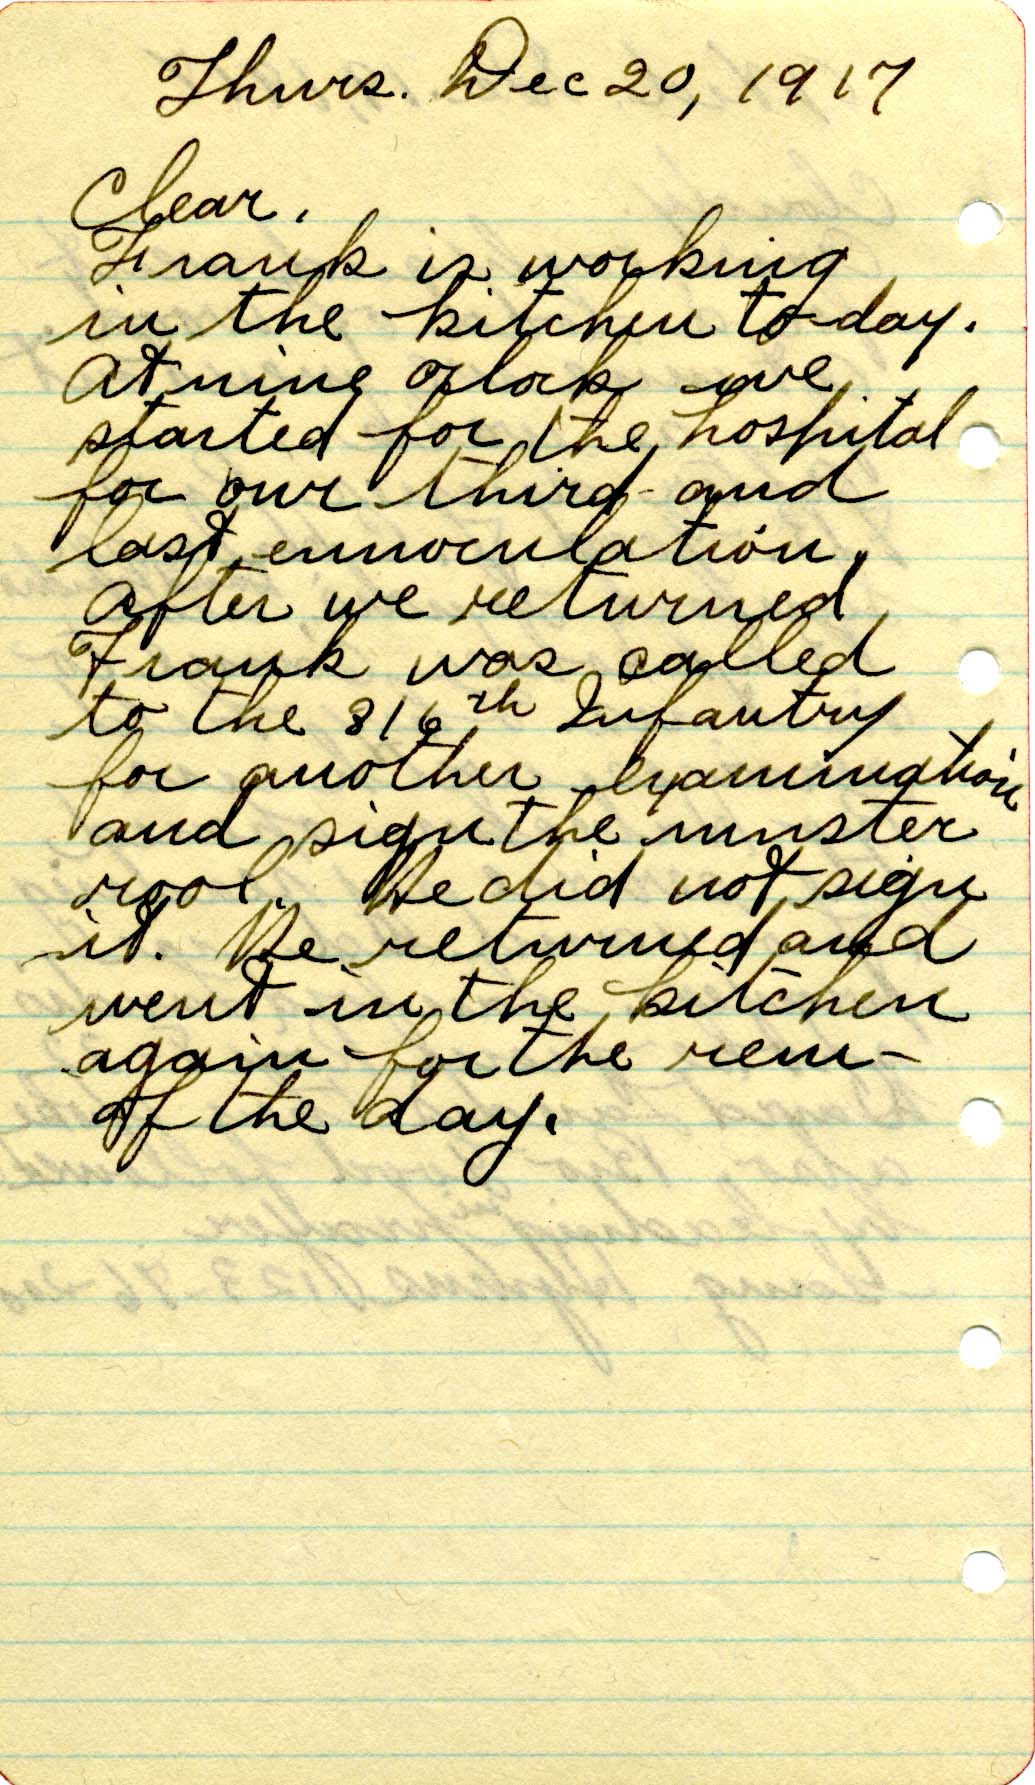 Thurs. Dec 20, 1917
Clear.
Frank is working
in the kitchen to-day.
At nine oclock we
started for the hospital
for our third and
last ennoculation.
After we returned
Frank was called
to the 316th Infantry
for another examination
and sign the muster
rool. He did not sign
it. He returned and
went in the kitchen
again for the rem-
of the day.